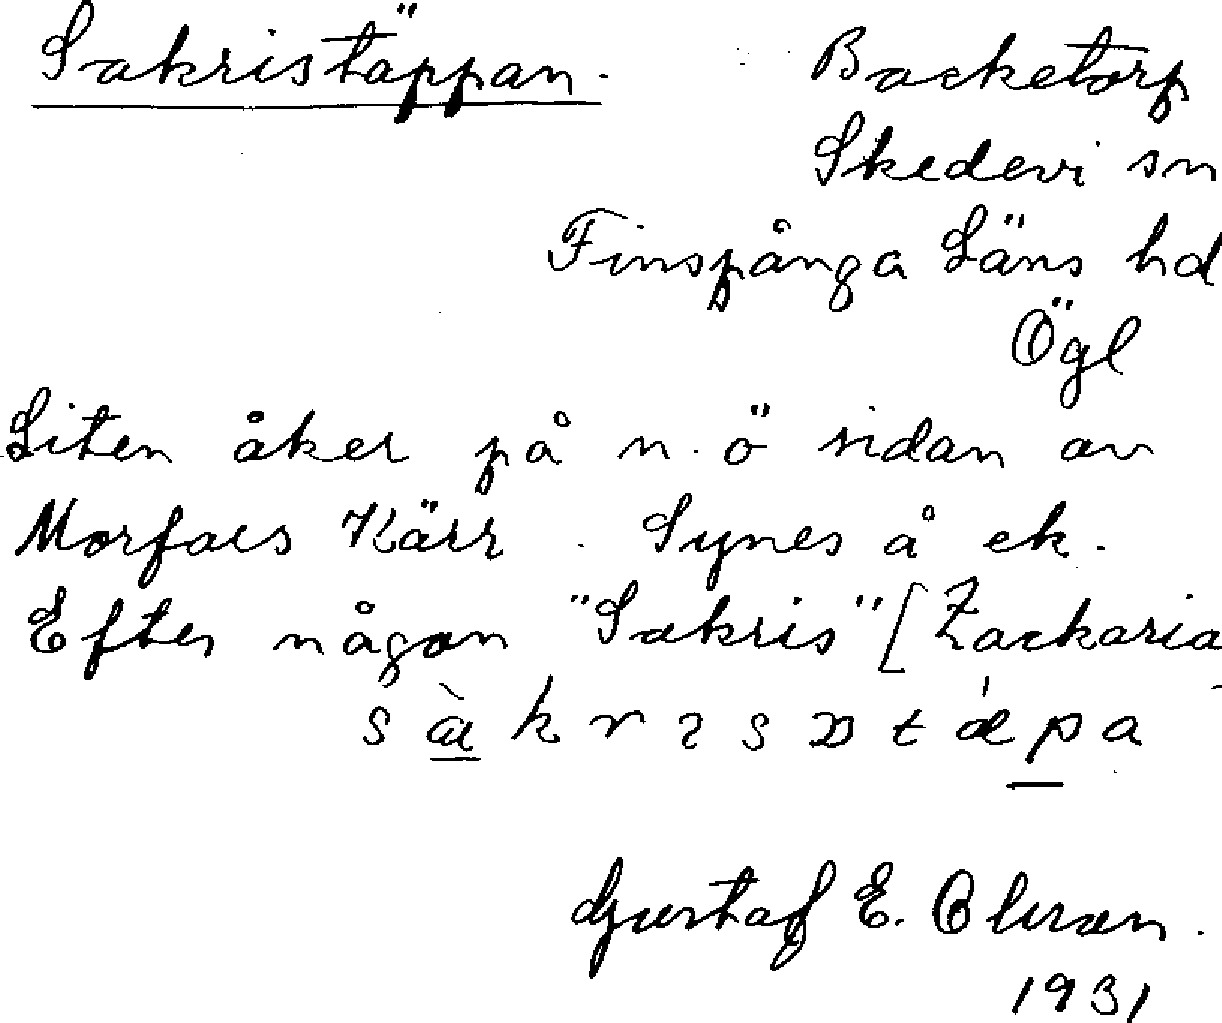 Sakristäppan. Backetorp
Skedevi sn
Finspånga Läns hd
Ögl
Liten åker på n.ö sidan av
Morfars Kärr. Synes å ek.
Efter någon "Sakris" [Zackaria
Gustaf E. Olsson.
1931